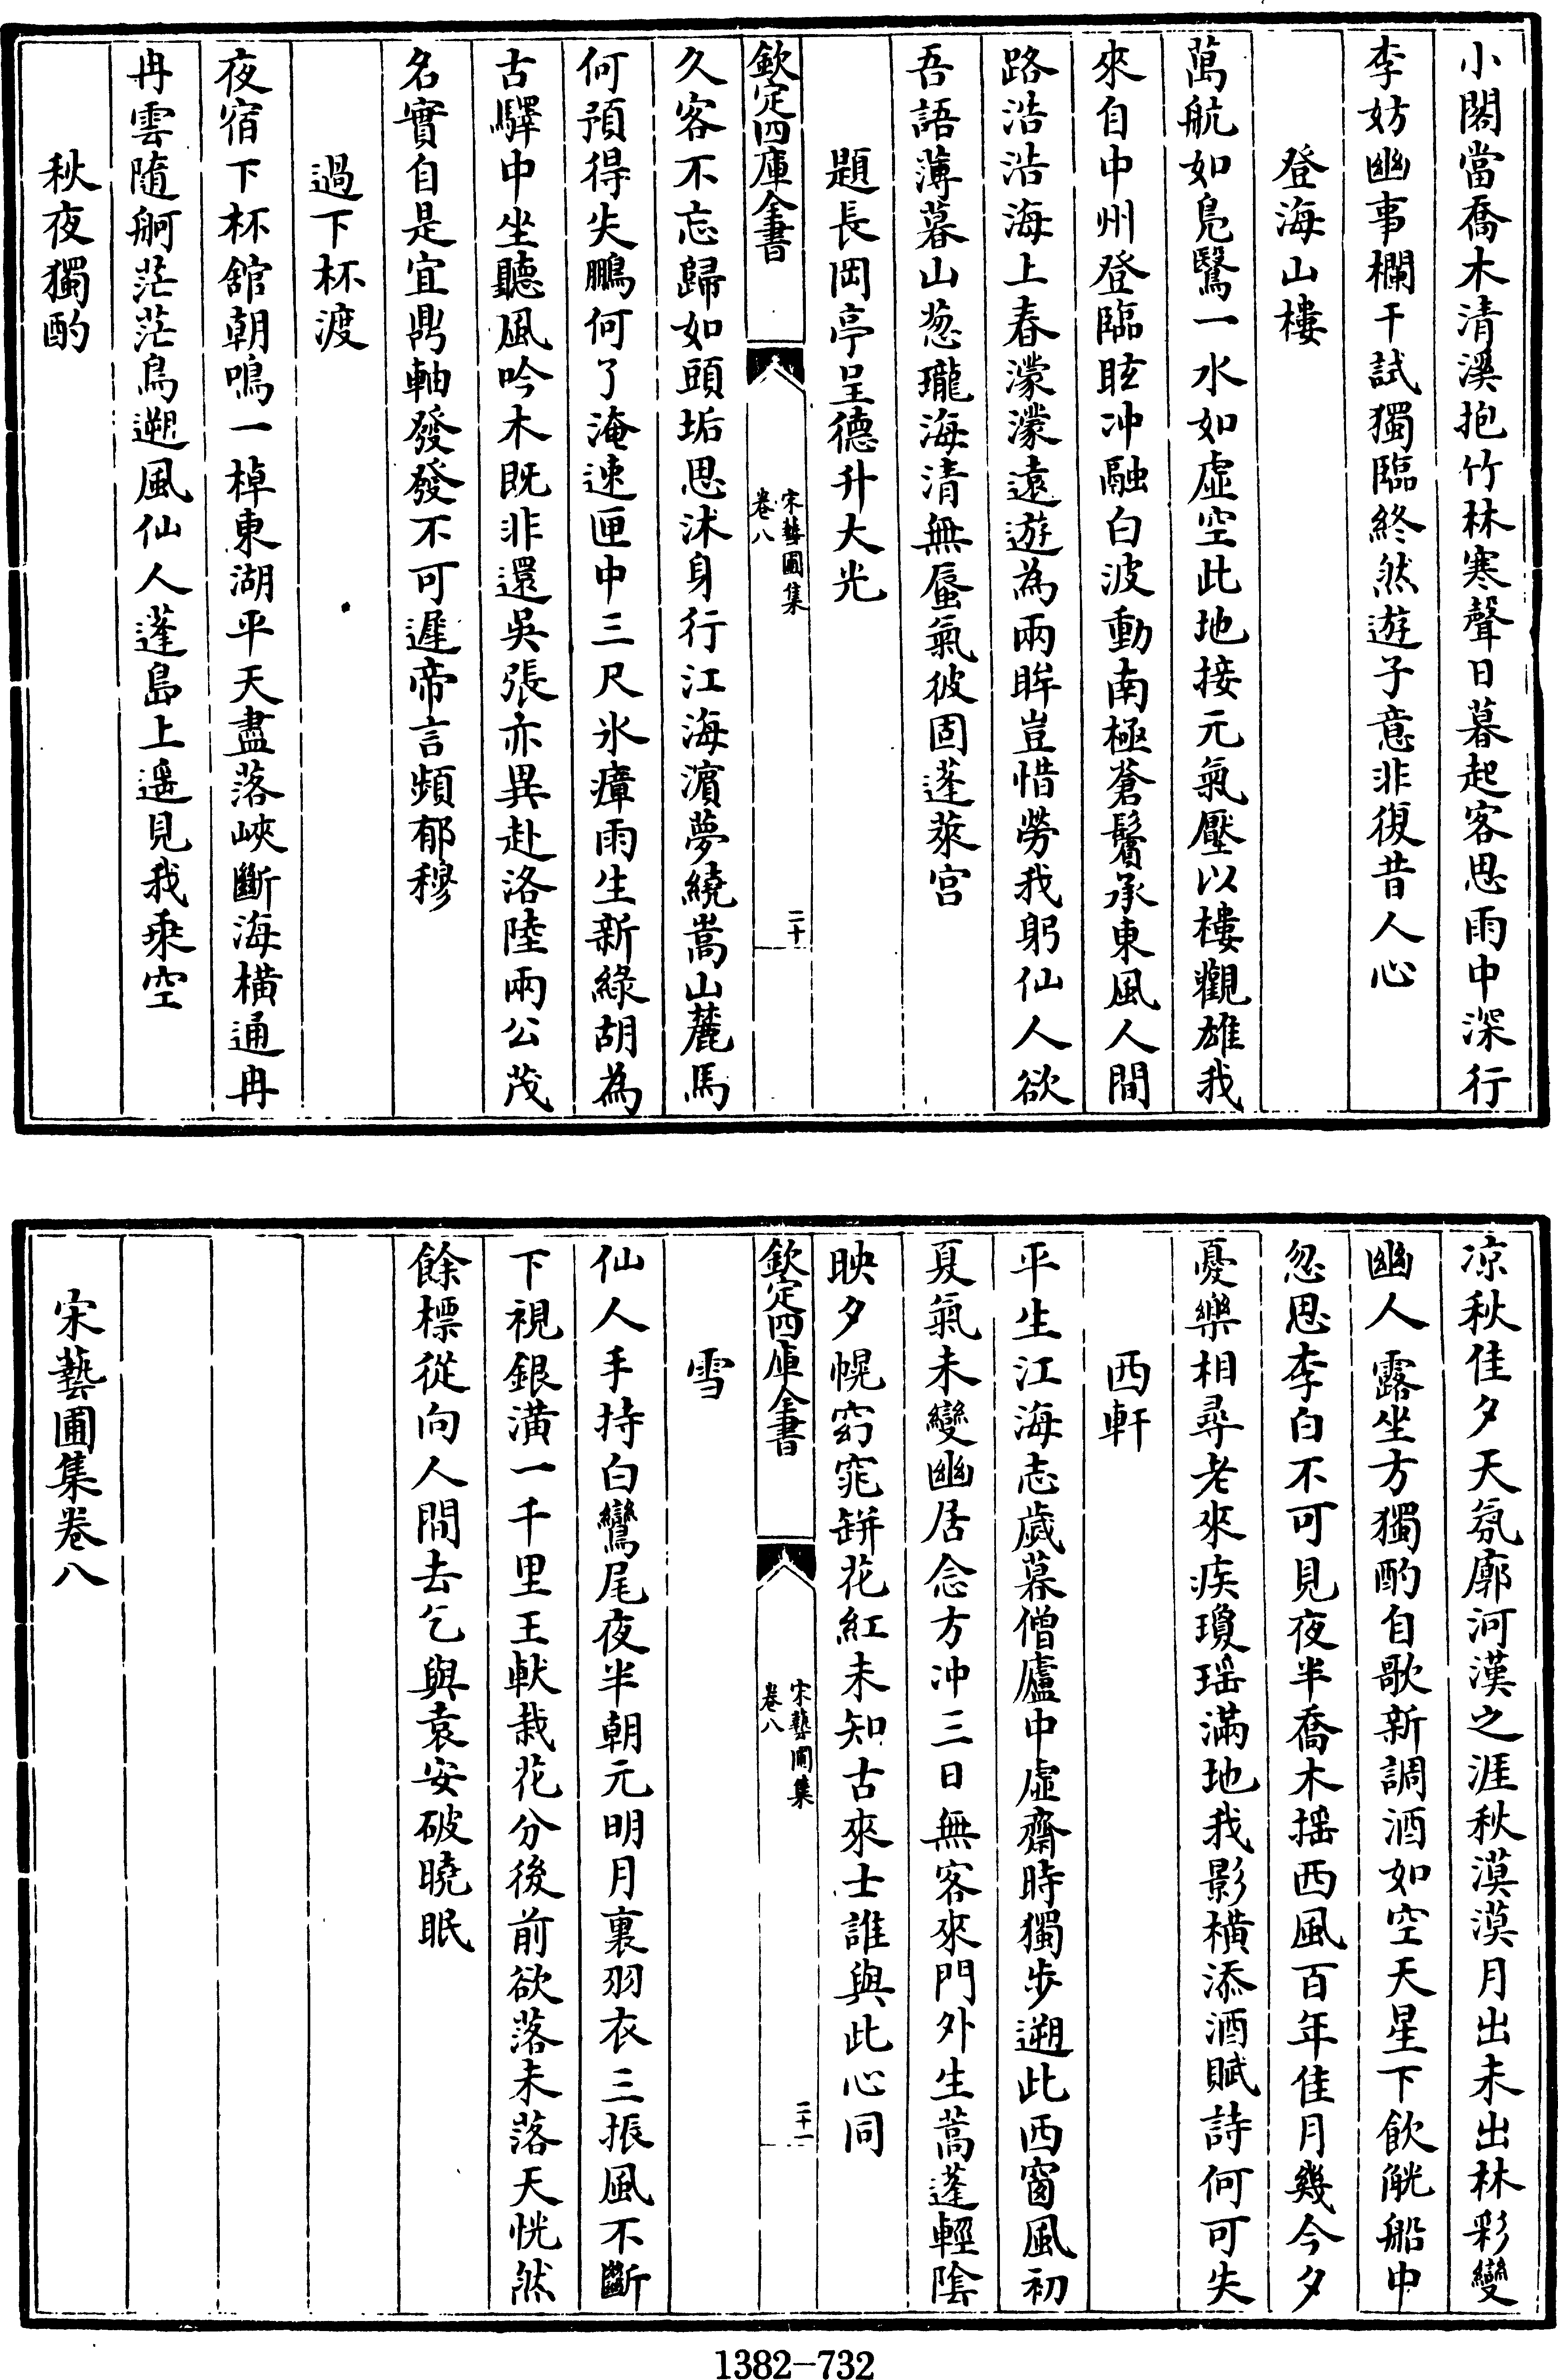 小閣當喬木清溪抱竹林寒聲日暮起客思雨中深行
李妨幽事欄干試獨臨終然遊子意非復昔人心
登海山樓
萬航如鳧鷖一水如虛空此地接元氣壓以樓觀雄我
來自中州登臨眩冲融白波動南極蒼鬢承東風人間
路浩浩海上春濛濛遠遊為兩眸豈惜勞我躬仙人欲
吾語薄暮山葱瓏海清無蜃氣彼固蓬萊宮
題長岡亭呈德升大光
欽定四庫全書
宋藝圃集
卷八
二十
久客不忘歸如頭垢思沐身行江海濵夢繞嵩山麓馬
何預得失鵬何了淹速匣中三尺氷瘴雨生新綠胡為
古驛中坐聽風吟木既非還吳張亦異赴洛陸兩公茂
名實自是宜鼎軸發發不可遲帝言頻郁穆
過下杯渡
夜宿下杯舘朝鳴一棹東湖平天盡落峽斷海橫通冉
冉雲隨舸茫茫鳥遡風仙人蓬島上遥見我乗空
秋夜獨酌
凉秋佳夕天氛廓河漢之涯秋漠漠月出未出林彩變
幽人露坐方獨酌自歌新調酒如空天星下飲觥船中
忽思李白不可見夜半喬木揺西風百年佳月幾今夕
憂樂相尋老來疾瓊瑶滿地我影橫添酒賦詩何可失
西軒
平生江海志歲暮僧廬中虛齋時獨步遡此西窗風初
夏氣未變幽居念方冲三日無客來門外生蒿蓬輕隂
映夕幌窈窕缾花紅未知古來士誰與此心同
欽定四庫全書
宋藝圃集
卷八
二十一
雪
仙人手持白鸞尾夜半朝元明月裏羽衣三振風不斷
下視銀潢一千里王猷栽花分後前欲落未落天恍然
餘標從向人間去乞與袁安破曉眠
宋藝圃集卷八
1382-732